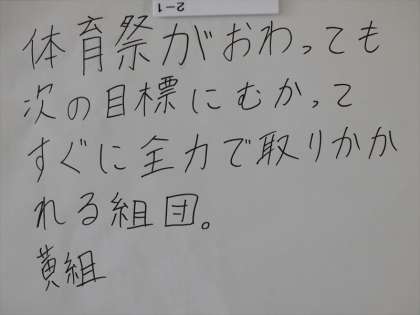 2-1
体育祭がおわっても
次の目標にむかって
すぐに全力で取りかか
れる組団。
黄組